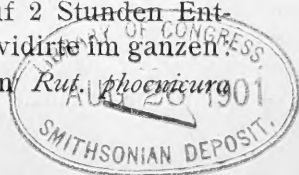 uf 2 Stunden Ent-
vidirte im ganzen
n Rut. phoenicura
LIBRARY OF CONGRESS,
AUG 26 1901
SMITHSONIAN DEPOSIT.